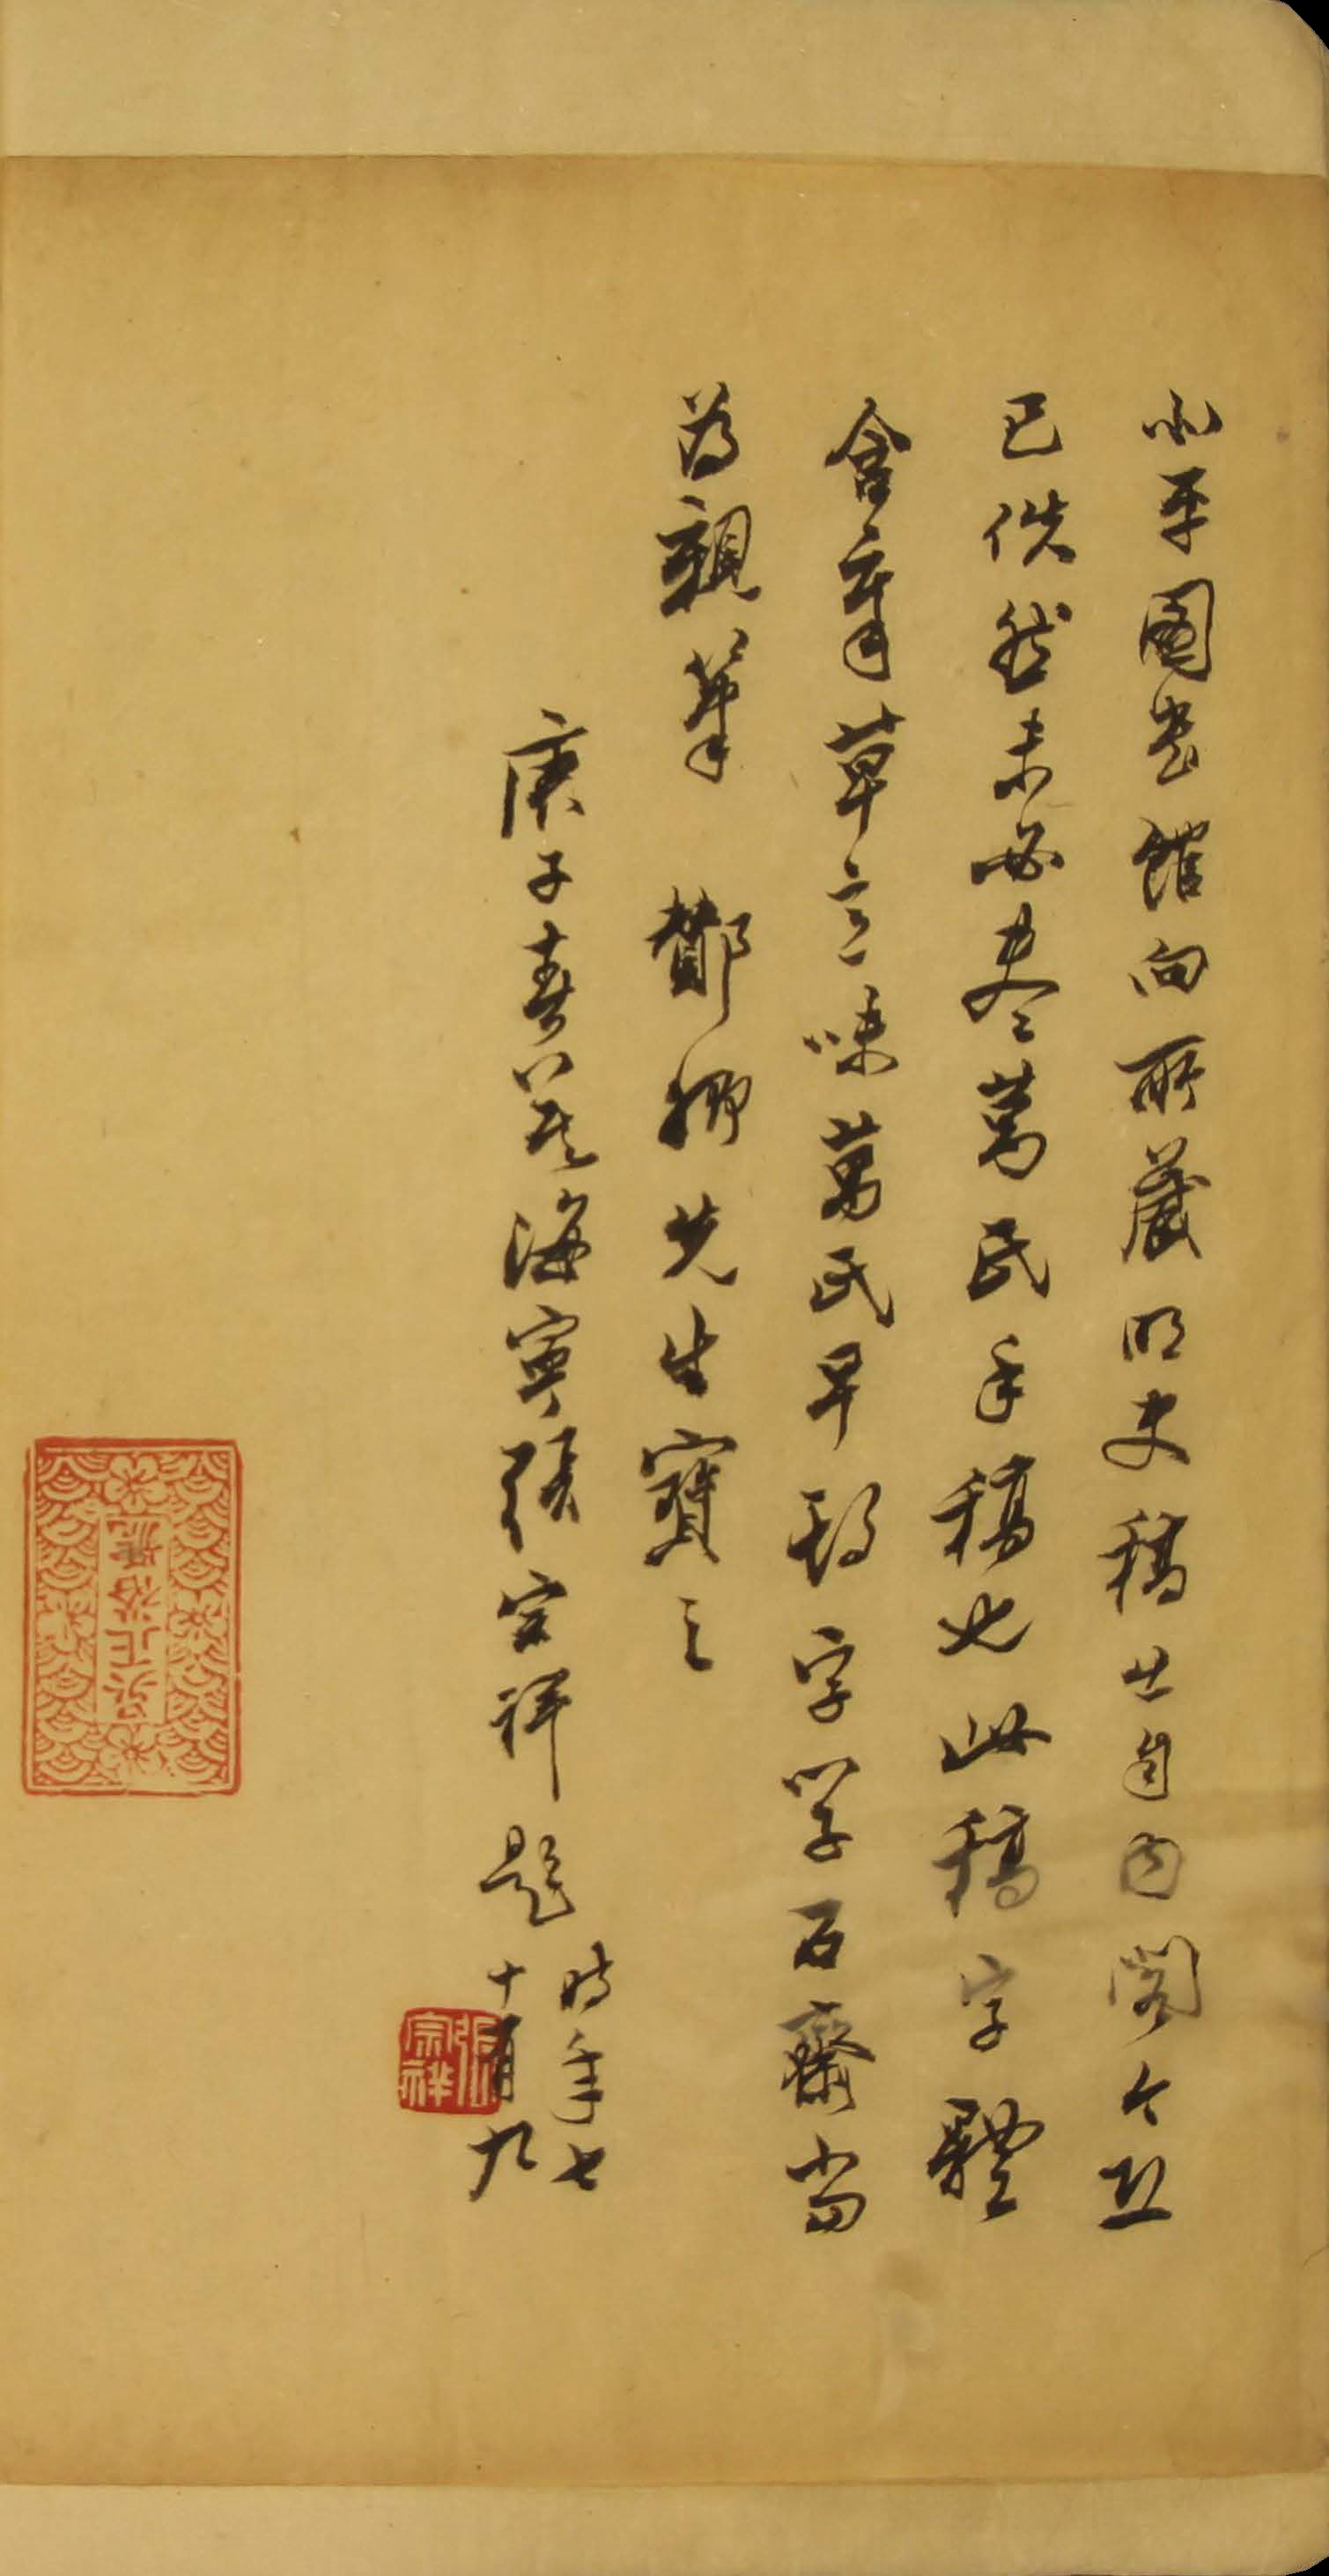 北平圖書館向所藏明史稿出自内閣今並
已佚然未必盡萬氏手稿也此稿字體
含章草意味萬氏早歲字學石齋當
為親筆　酇卿先生寶之
庚子春暮海寧張宗祥題
時年七
十有九
張宗祥